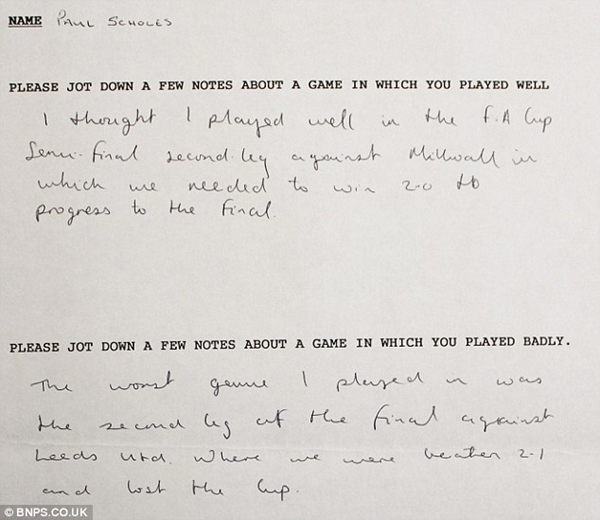 NAME PAUL SCHOLES
PLEASE JOT DOWN A FEW NOTES ABOUT A GAME IN WHICH YOU PLAYED WELL
I thought I played well in the F.A Cup
Semi-final second leg against Millwall in
which we needed to win 2-0 to
progress to the final.
PLEASE JOT DOWN A FEW NOTES ABOUT A GAME IN WHICH YOU PLAYED BADLY.
The worst game I played in was
the second leg of the final against
Leeds Utd. Where we were beaten 2-1
and lost the Cup.
© BNPS.CO.UK